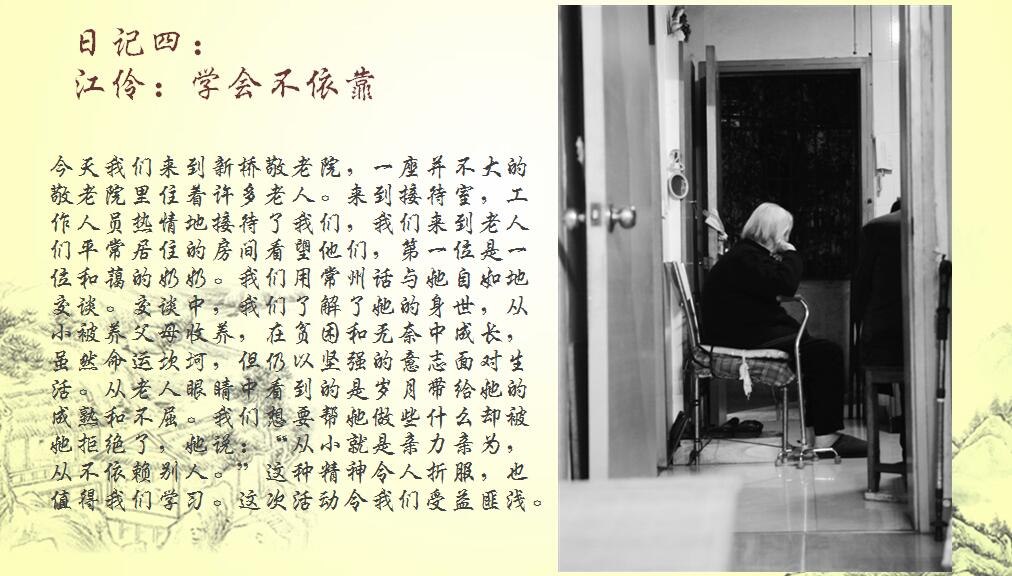 日记四：
江伶：学会不依靠
今天我们来到新桥敬老院，一座并不大的
敬老院里住着许多老人。来到接待室，工
作人员热情地接待了我们，我们来到老人
们平常居住的房间看望他们，第一位是一
位和蔼的奶奶。我们用常州话与她自如地
交谈。交谈中，我们了解了她的身世，从
小被养父母收养，在贫困和无奈中成长，
虽然命运坎坷，但仍以坚强的意志面对生
活。从老人眼睛中看到的是岁月带给她的
成熟和不屈。我们想要帮她做些什么却被
她拒绝了，她说：“从小就是亲力亲为，
从不依赖别人。”这种精神令人折服，也
值得我们学习。这次活动令我们受益匪浅。